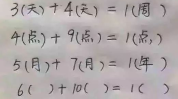 3(天)+4(天)=1(周)
4(点)+9(点)=1(点)
5(月)+7(月)=1(年)
6( )+10( )=1( )